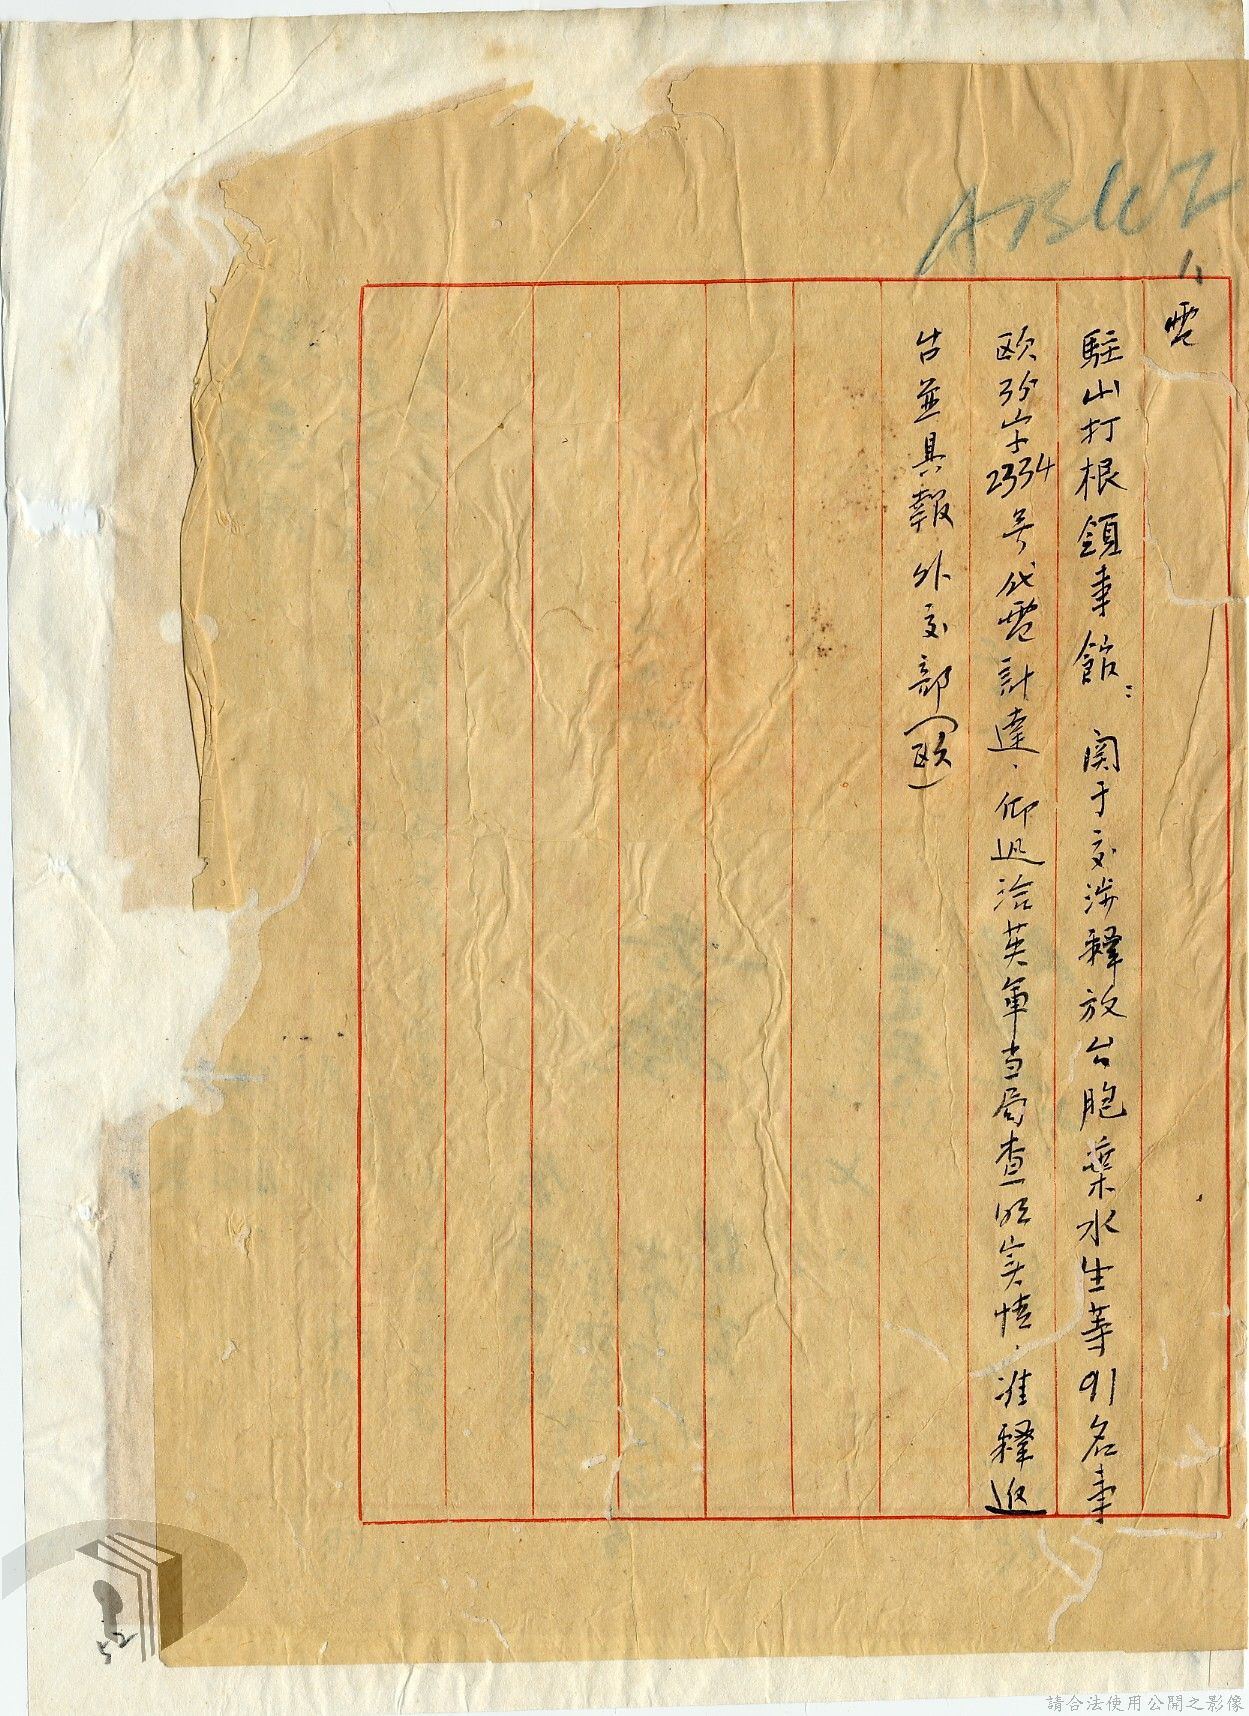 電
駐山打根領事館：関于交涉釋放台胞葉水生等91名事
欧38字2334号代電計達，仰迅洽英軍当局查明实情，准釋返
台並具報外交部（欧）
52
請合法使用公開之影像